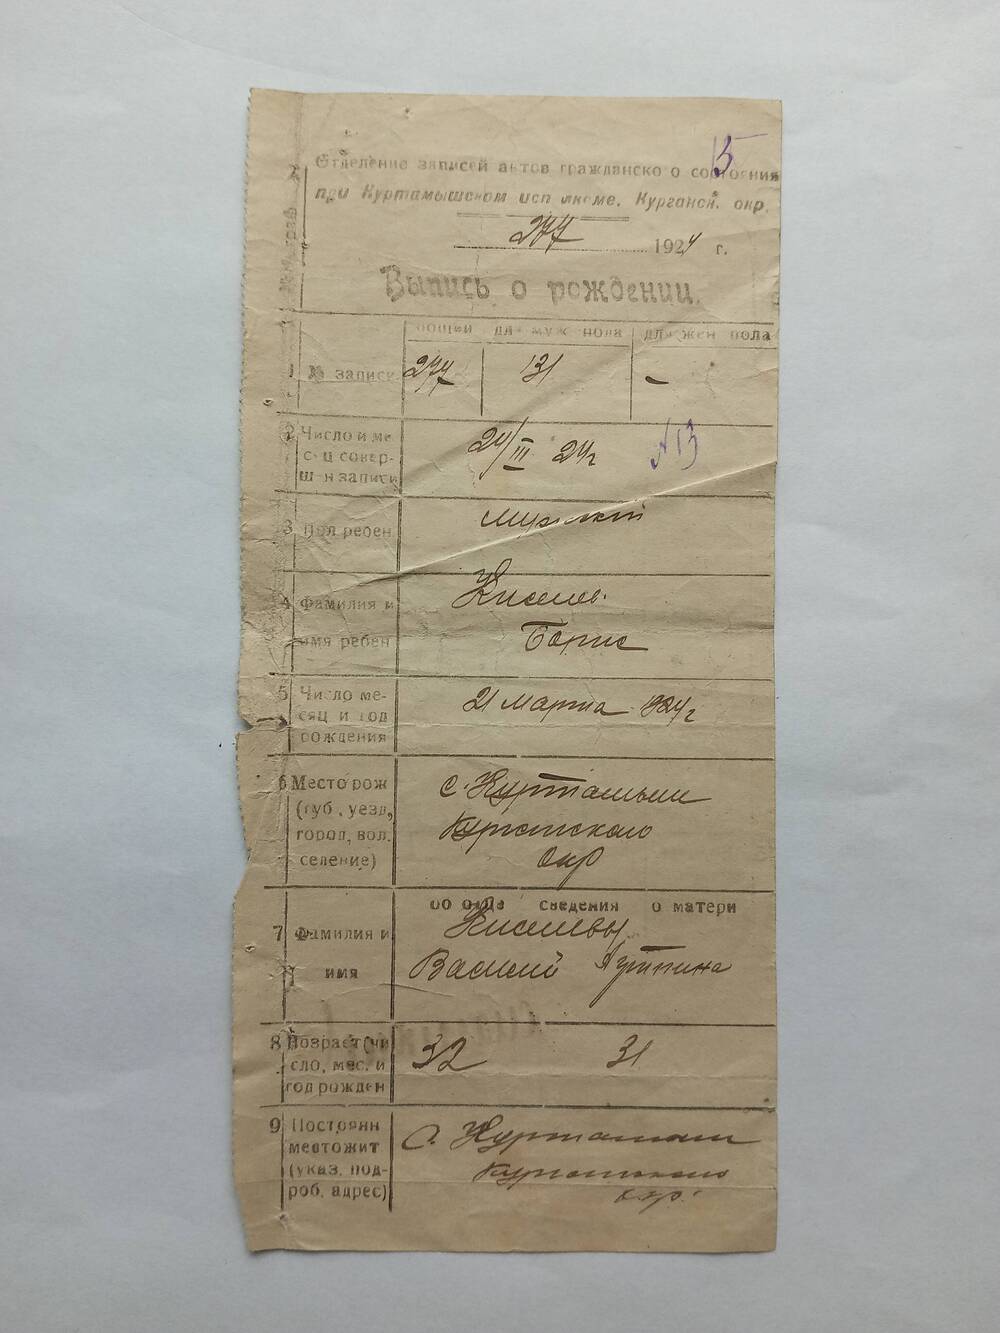 15
Отделение записей актов гражданско о состояния
при Куртамышском исп лкоме. Курганск. окр.
277 1924 г.
Выпись о рождении.
общей для муж пола для жен пола
1 № записи 277 131 –
2 Число и ме
с-ц совер-
ш-н записи
24/III 24г
N 13
3 Пол ребен мужской
4 Фамилия и
имя ребен
Киселев.
Борис
5 Число ме-
сяц и год
рождения
21 марта 1924 г
6 Место рож
(губ., уезд,
город, вол.
селение)
с. Куртамыш
Курганского
окр
об отце сведения о матери
7 Фамилия и
имя
Киселевы
Василий
8 Возраст (чи
сло, мес. и
год рожден
32 31
9 Постоянн
местожит
(указ. под-
роб. адрес)
с. Куртамыш
Курганского
окр.